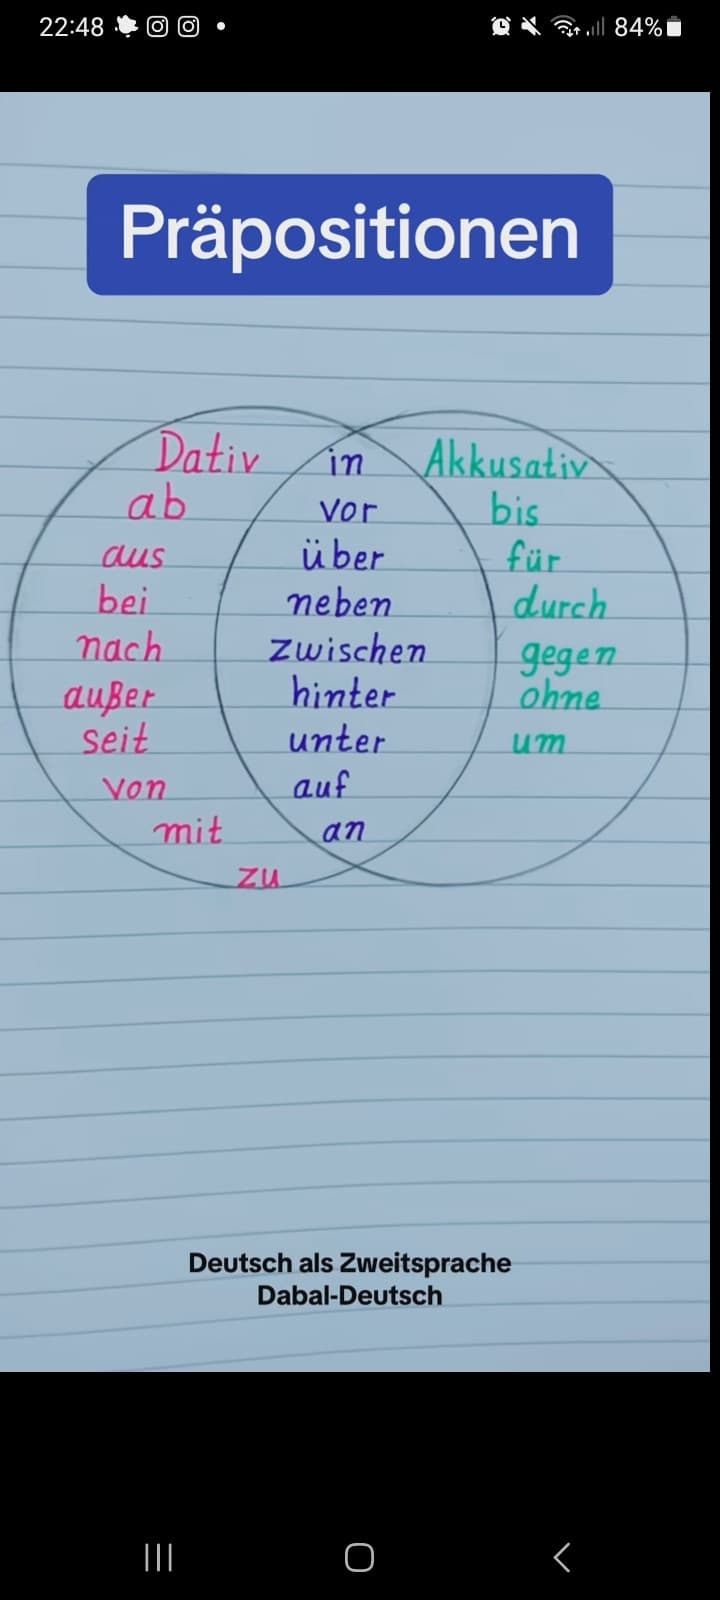 22:48
84%
Präpositionen
Dativ in Akkusativ
ab vor bis
aus über für
bei neben durch
nach zwischen gegen
außer hinter ohne
seit unter um
von auf
mit an
zu
Deutsch als Zweitsprache
Dabal-Deutsch